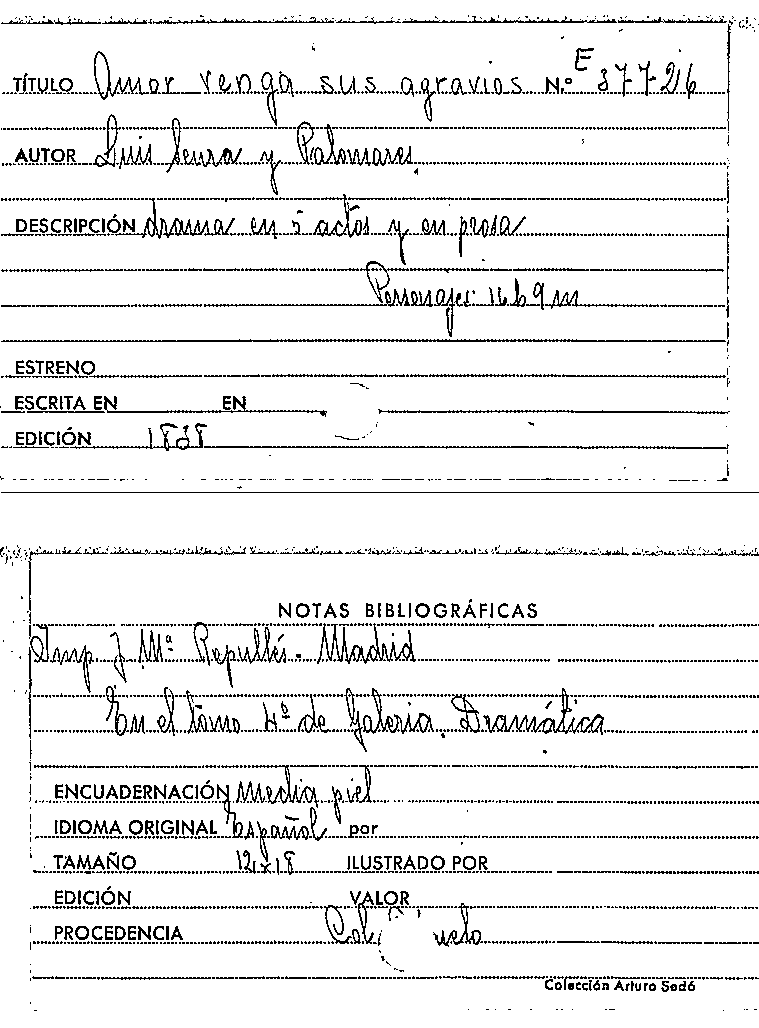 TÍTULO Amor venga sus agravios N.º E 377-216
AUTOR Luis Senra y Palomares
DESCRIPCIÓN drama en 5 actos y en prosa
Personajes: 16 h 9 m
ESTRENO
ESCRITA EN EN
EDICIÓN 1838
NOTAS BIBLIOGRÁFICAS
Imp. J. Mª Repullés - Madrid
En el tomo 4º de Galeria Dramática
ENCUADERNACIÓN Media piel
IDIOMA ORIGINAL Español por
TAMAÑO 12x18 ILUSTRADO POR
EDICIÓN VALOR
PROCEDENCIA Col.
Colección Arturo Sedó